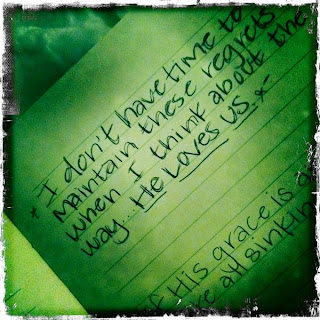 * I don't have time to
maintain these regrets
when I think about the
way... He Loves us *~
If His grace is a
we all sinkin